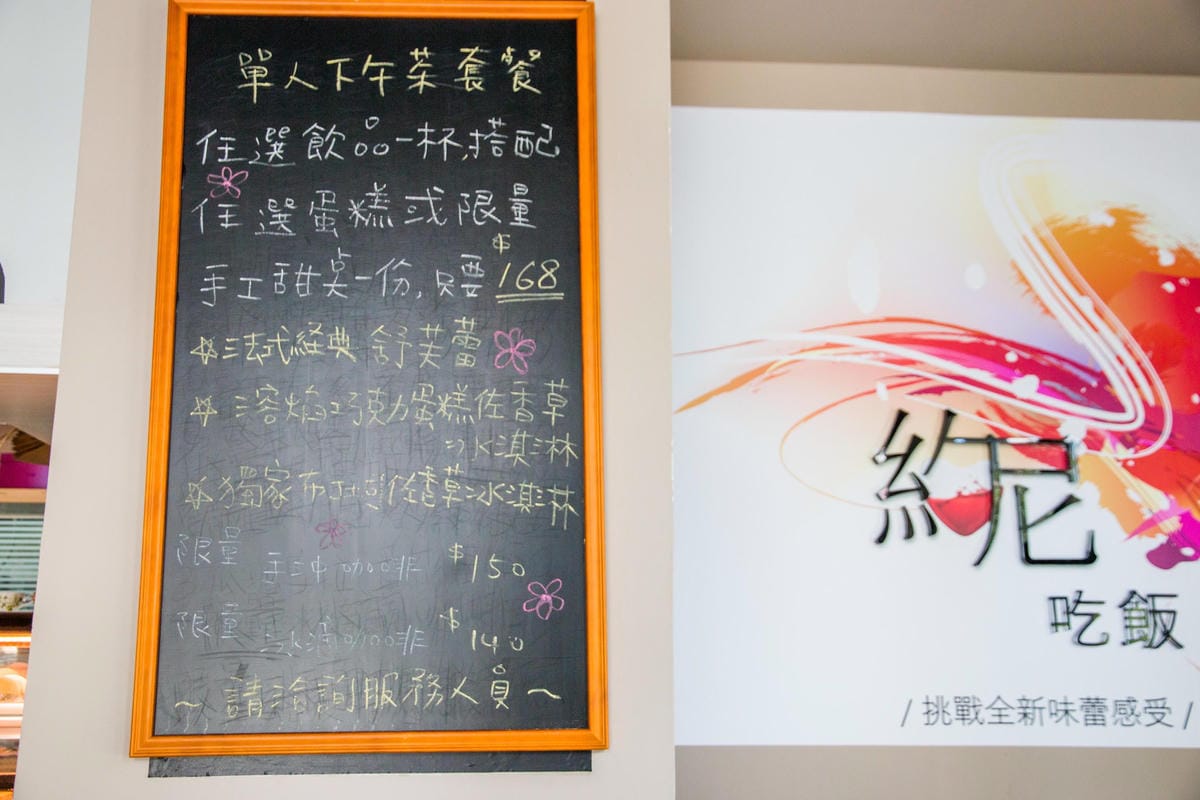 單人下午茶套餐
任選飲品一杯,搭配
任選蛋糕或限量
手工甜点一份,只要 $168
☆法式經典舒芙蕾
☆溶焰巧克力蛋糕佐香草
冰淇淋
☆獨家布丁佐香草冰淇淋
限量 手沖咖啡 $150
限量 冰滴咖啡 $140
~請洽詢服務人員~
約尼
吃飯
/挑戰全新味蕾感受/